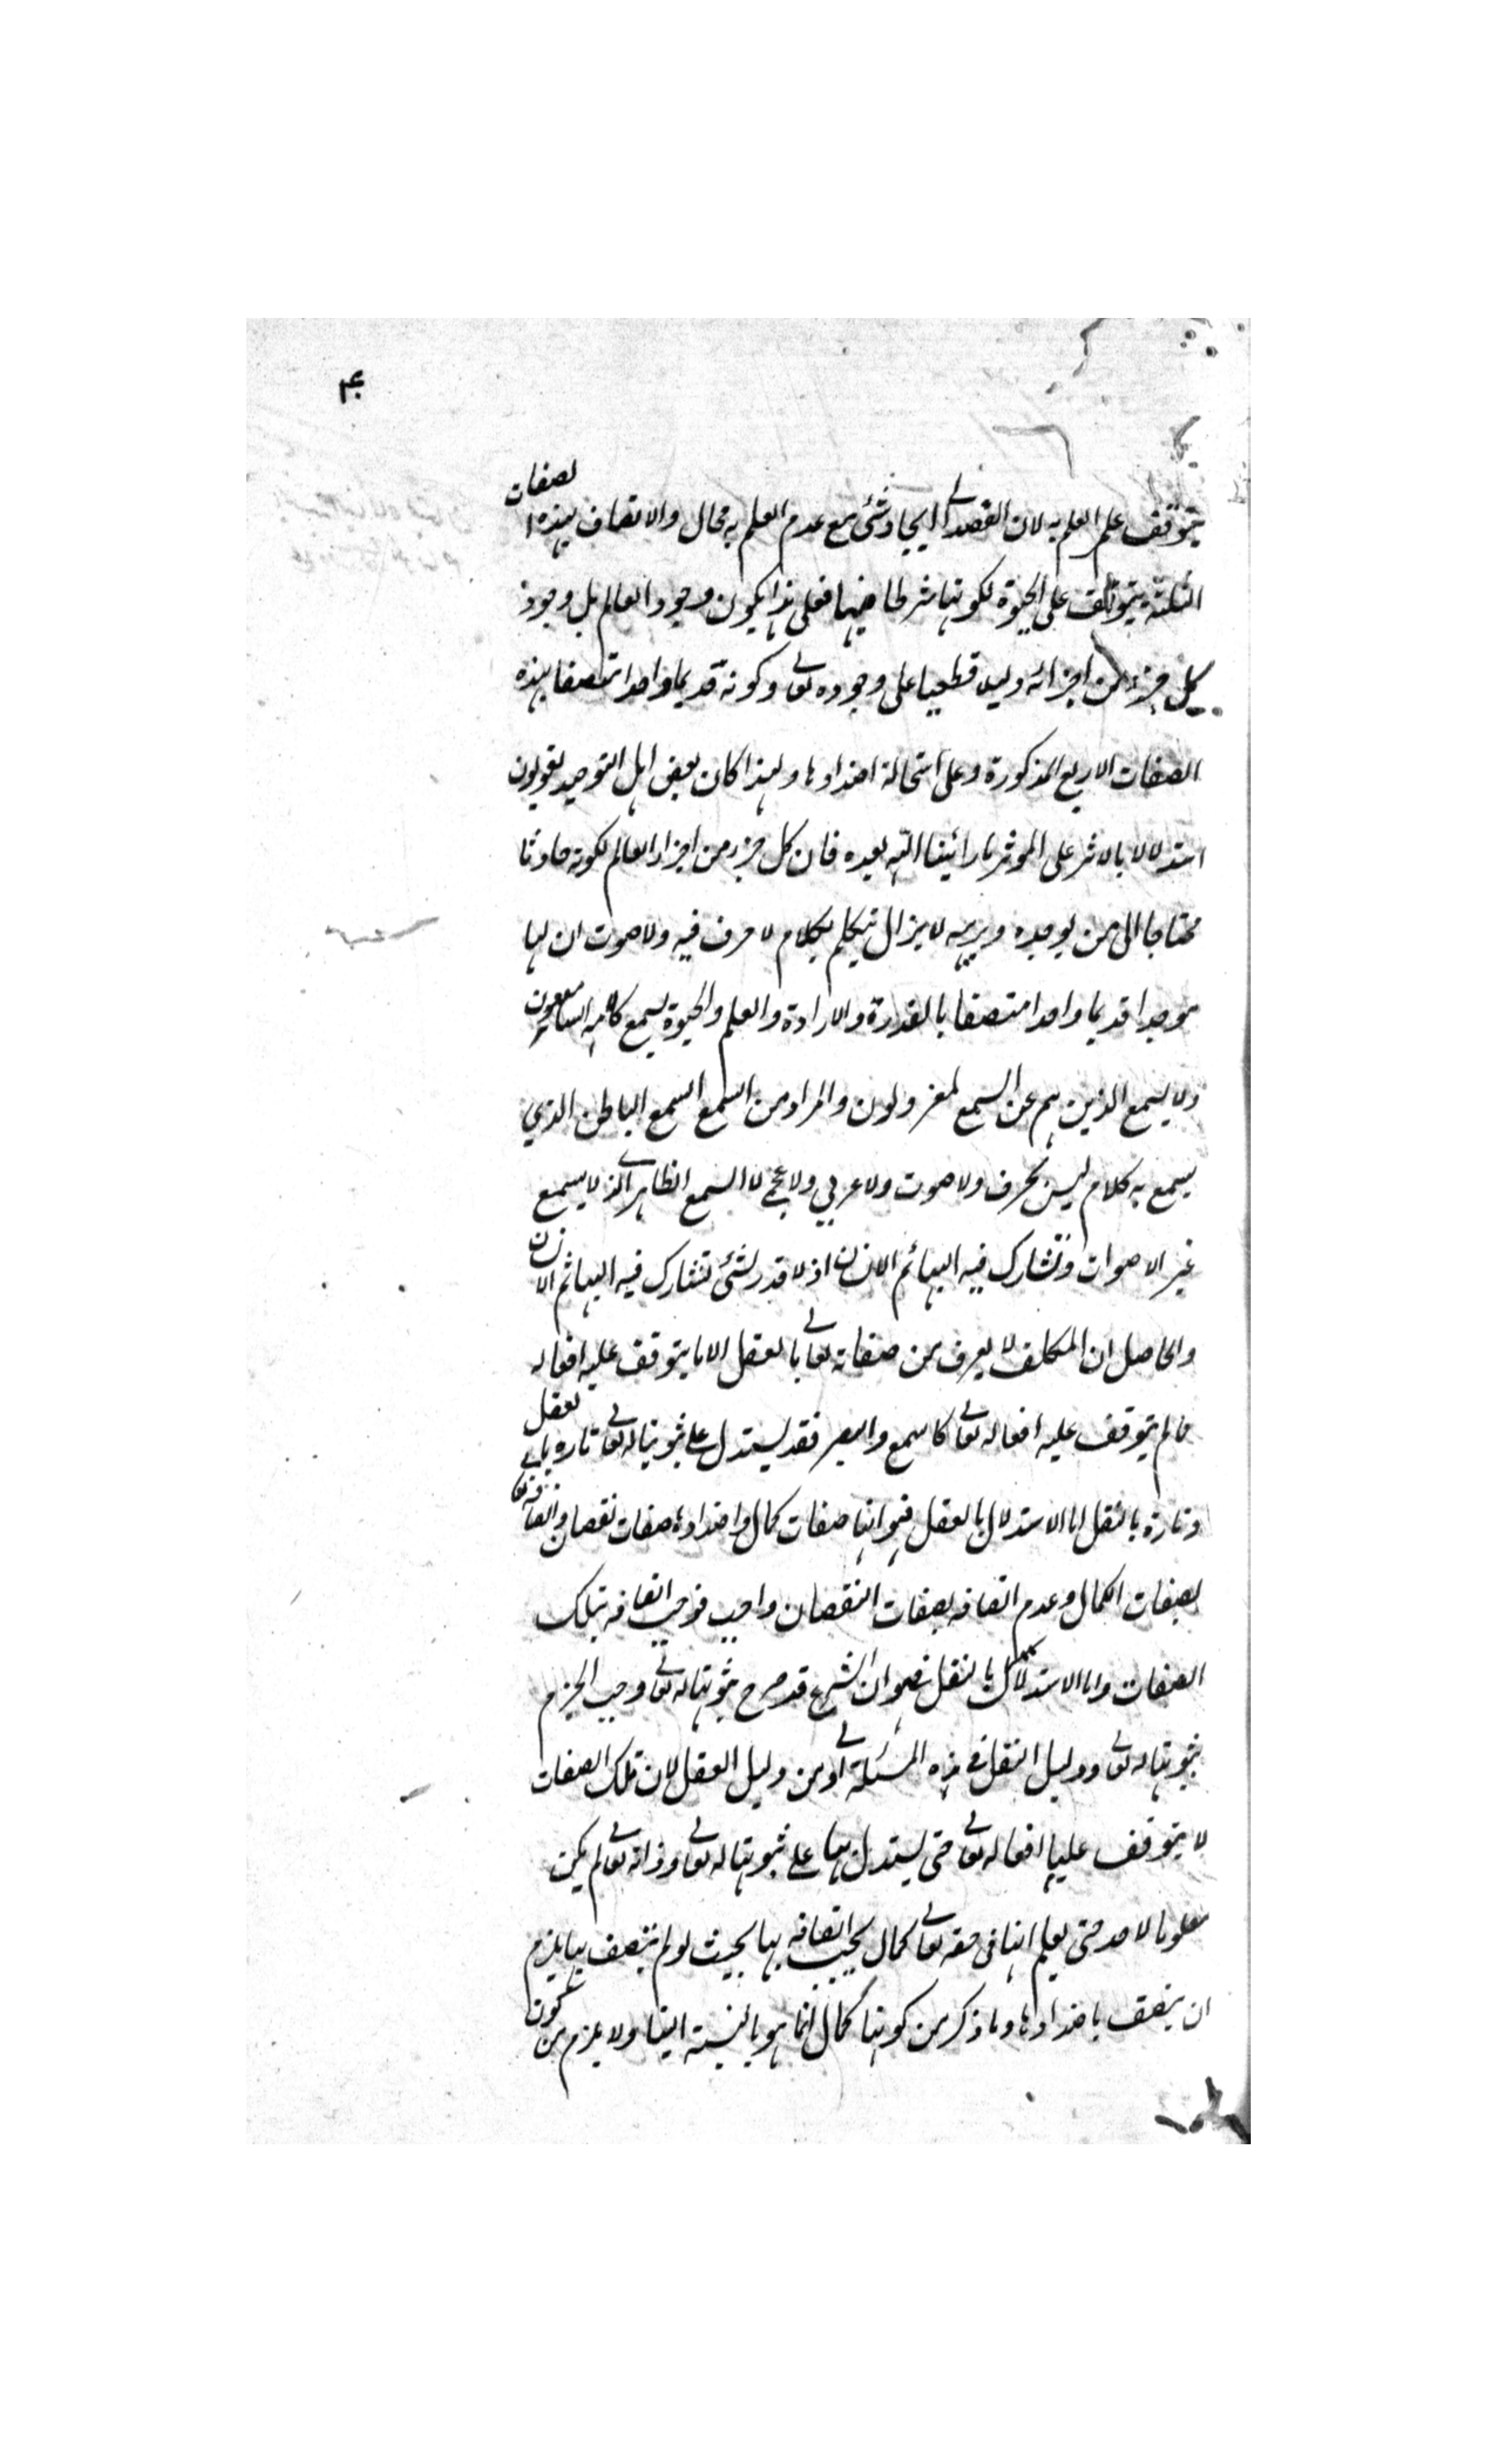 ۴
يتوقف على العلم به لان القصد الى ايجاد شئ مع عدم العلم به محال والاتصاف بهذه الصفات
الثلثة يتوقف على الحيوة لكونها شرطا فيها فعلى هذا يكون وجود العالم بل وجود
كل جزء من اجزائه دليلا قطعيا على وجوده تعالى وكونه قديما واحدا متصفا بهذه
الصفات الاربع المذكورة وعلى استحالة اضدادها ولهذا كان بعض اهل التوحيد يقولون
استدلالا بالاثر على الموثر ما رائينا الله بعيده فان كل جزء من اجزاء العالم لكونه حادثا
محتاجا الى من يوجده ويربيه لا يزال يتكلم بكلام لا حرف فيه ولا صوت ان لها
موجدا قديما واحدا متصفا بالقدرة والارادة والعلم والحيوة يسمع كلامه السامعون
ولا يسمع الذين هم عن السمع لمعزولون والمراد من السمع السمع الباطن الذي
يسمع به كلام ليس بحرف ولا صوت ولا عربي ولا عجمي لا السمع الظاهر الذي لا يسمع
غير الاصوات وتشارك فيه البهائم الانسان اذ لا قدر لشئ تتشارك فيه البهائم الانسان
والحاصل ان المكلف لا يعرف من صفاته تعالى بالعقل الا ما يتوقف عليه افعاله
فما لم يتوقف عليه افعاله تعالى كالسمع والبصر فقد يستدل على ثبوتها له تعالى تارة بالعقل
وتارة بالنقل اما الاستدلال بالعقل فهو انها صفات كمال واضدادها صفات نقصان واتصافه تعالى
بصفات الكمال وعدم اتصافه بصفات النقصان واجب فوجب اتصافه بتلك
الصفات واما الاستدلال بالنقل فهو ان الشرع قد صرح بثبوتها له تعالى وجب الجزم
بثبوتها له تعالى ودليل النقل في هذه المسئلة اولى من دليل العقل لان تلك الصفات
لا يتوقف عليها افعاله تعالى حتى يستدل بها على ثبوتها له تعالى وذاته تعالى لم يكن
معلوما لاحد حتى يعلم انها فى حقه تعالى كمال يجب اتصافه بها بحيث لو لم يتصف بها يلزم
ان يتصف باضدادها وما ذكر من كونها كمال انما هو بالنسبة الينا ولا يلزم من كون